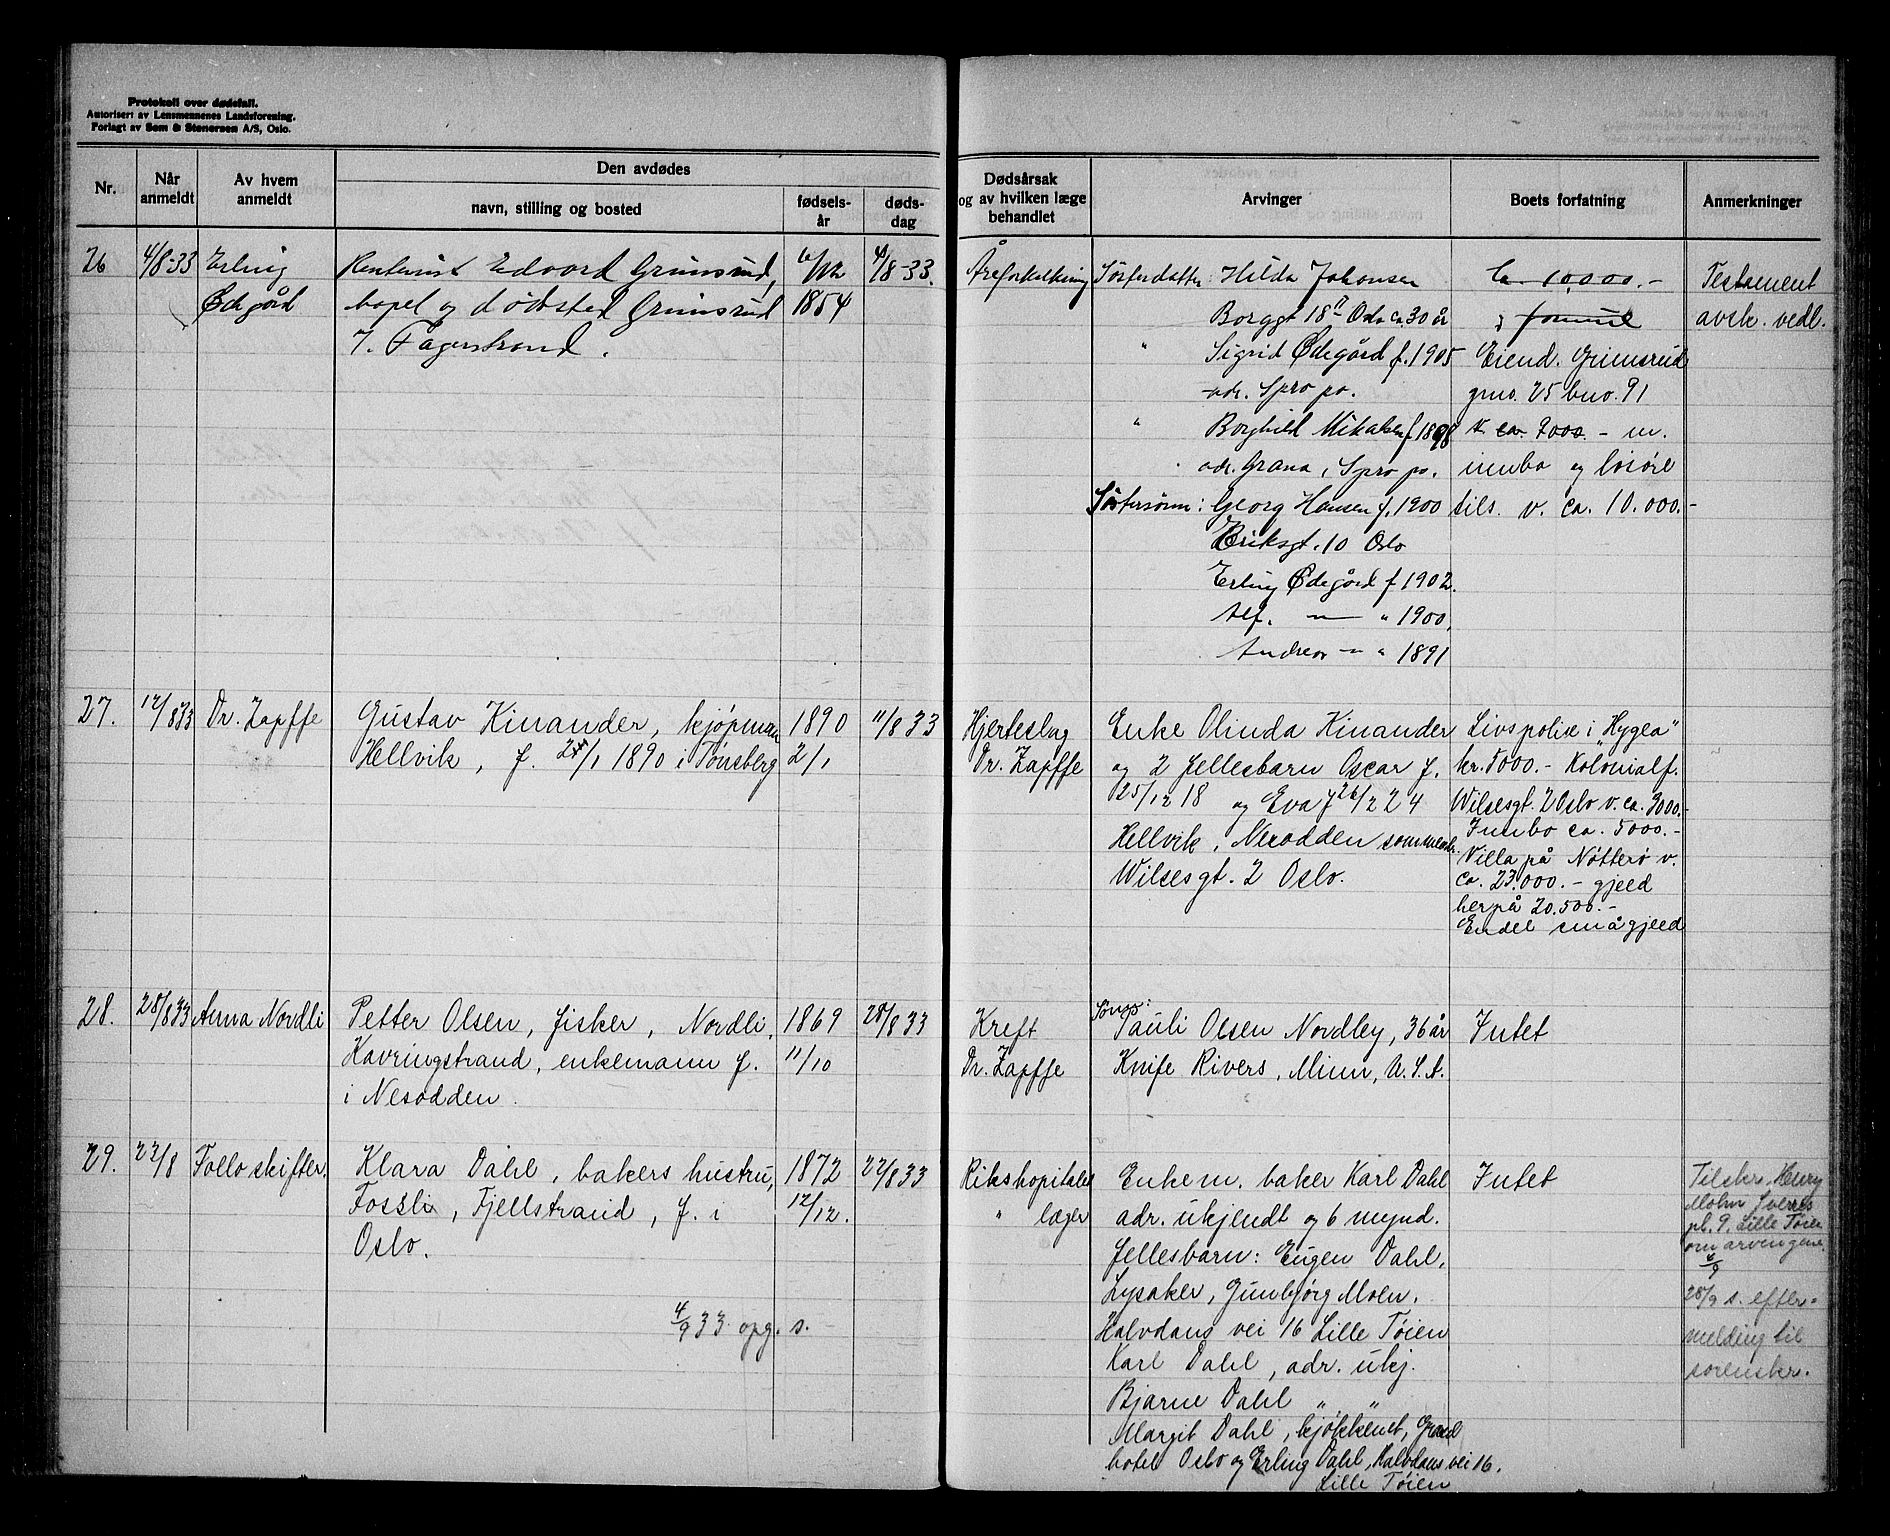 Protokoll over dødsfall.
Autorisert av Lensmennenes Landsforening.
Forlagt av Sem & Stenersen A/S, Oslo.
Nr.
Når
anmeldt
Av hvem
anmeldt
Den avdødes
navn, stilling og bosted
fødsels-
år
døds-
dag
Dødsårsak
og av hvilken læge
behandlet
Arvinger
Boets forfatning
Anmerkninger
26
4/8-33
Erling
Ødegård
Rentenist Edvard Grimsrud,
bopel og dødssted Grimsrud
7. Fagerstrand.
6/12
1854
4/8-33.
Åreforkalkning
Søsterdatter: Hilda Johansen
Borggt 18 Oslo ca 30 år
" Sigrid Ødegård f. 1905
adr. Spro po.
" Borghild Mikalsen f 1898
adr. Grana, Spro po.
Søstersønn: Georg Hansen f. 1900
Eriksgt. 10 Oslo
Erling Ødegård f 1902.
Alf. — " — " 1900.
Andreas — " — " 1891
Ca 10,000.-
Eiend. Grimsrud
gno. 25 bno. 91
v. ca. 7000. - m.
innbo og løsøre
tils. v. ca. 10.000.-
Testament
avsk. vedl.
27.
12/8 33
Dr. Zapffe
Gustav Kinander, kjøpmann
Hellvik, f. 2/1 1890 i Tønsberg
1890
2/1
11/8 33
Hjerteslag
Dr. Zapffe
Enke Olinda Kinander
og 2 fellesbarn Oscar f.
25/12 18 og Eva f 26/2 24
Hellvik, Nesodden
Wilsesgt. 2 Oslo.
Livspolise i "Hygea"
kr. 5000.- Kolonialf.
Wilsesgt. 2 Oslo v. ca. 3000.-
Innbo ca. 5000.-
Villa på Nøtterø v.
ca. 23.000.- gjeld
herpå 20.500.-
Endel smågjeld
28.
28/8 33
Anna Nordli
Petter Olsen, fisker, Nordli,
Kavringstrand, enkemann f.
i Nesodden.
1869
11/10
28/8 33
Kreft
Dr. Zapffe
Sønn:
Pauli Olsen Nordley, 36 år
Knife Rivers, Minn, U.S.A.
Intet
29.
22/8
Follo skifter.
Klara Dahl, bakers hustru,
Fossli, Fjellstrand, f. i
Oslo.
4/9 33 opg. s.
1872
12/12.
22/8 33
Rikshopitalets
" læger
Enkem. baker Karl Dahl
adr. ukjendt og 6 mynd.
fellesbarn: Eugen Dahl,
Lysaker, Gunbjørg Moen.
Halvdans vei 16 Lille Tøien
Karl Dahl, adr. ukj.
Bjarne Dahl " "
Margit Dahl, kjøkkenet, Grand
hotel Oslo og Erling Dahl, Halvdans vei 16.
Lille Tøien
Intet
Tilskr. Henry
Mohn Sverres
pl. 9. Lille Tøien
om arvingene.
6/9
28/9 s. efter-
melding til
sorenskr.